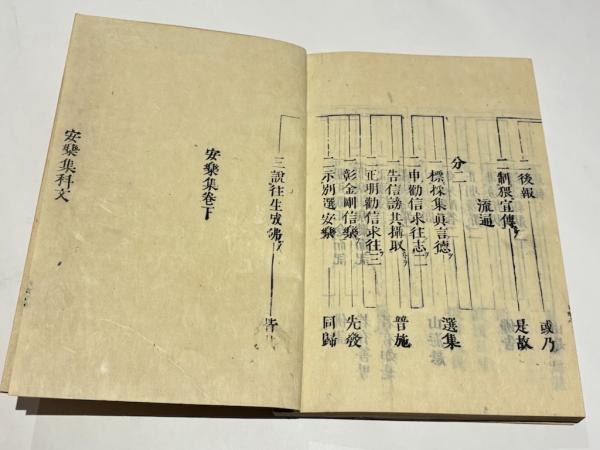 二後報 或乃
二制猥宜傳ヲ 是故
流通
分二
一標採集眞言德ヲ 選集
二申勸信求往志二
一告信謗共攝取 普施
二正明勸信求往三
一彰金剛信樂 先發
二示別選安樂 同歸
三說往生成佛ヲ 皆
安樂集卷下
安樂集科文